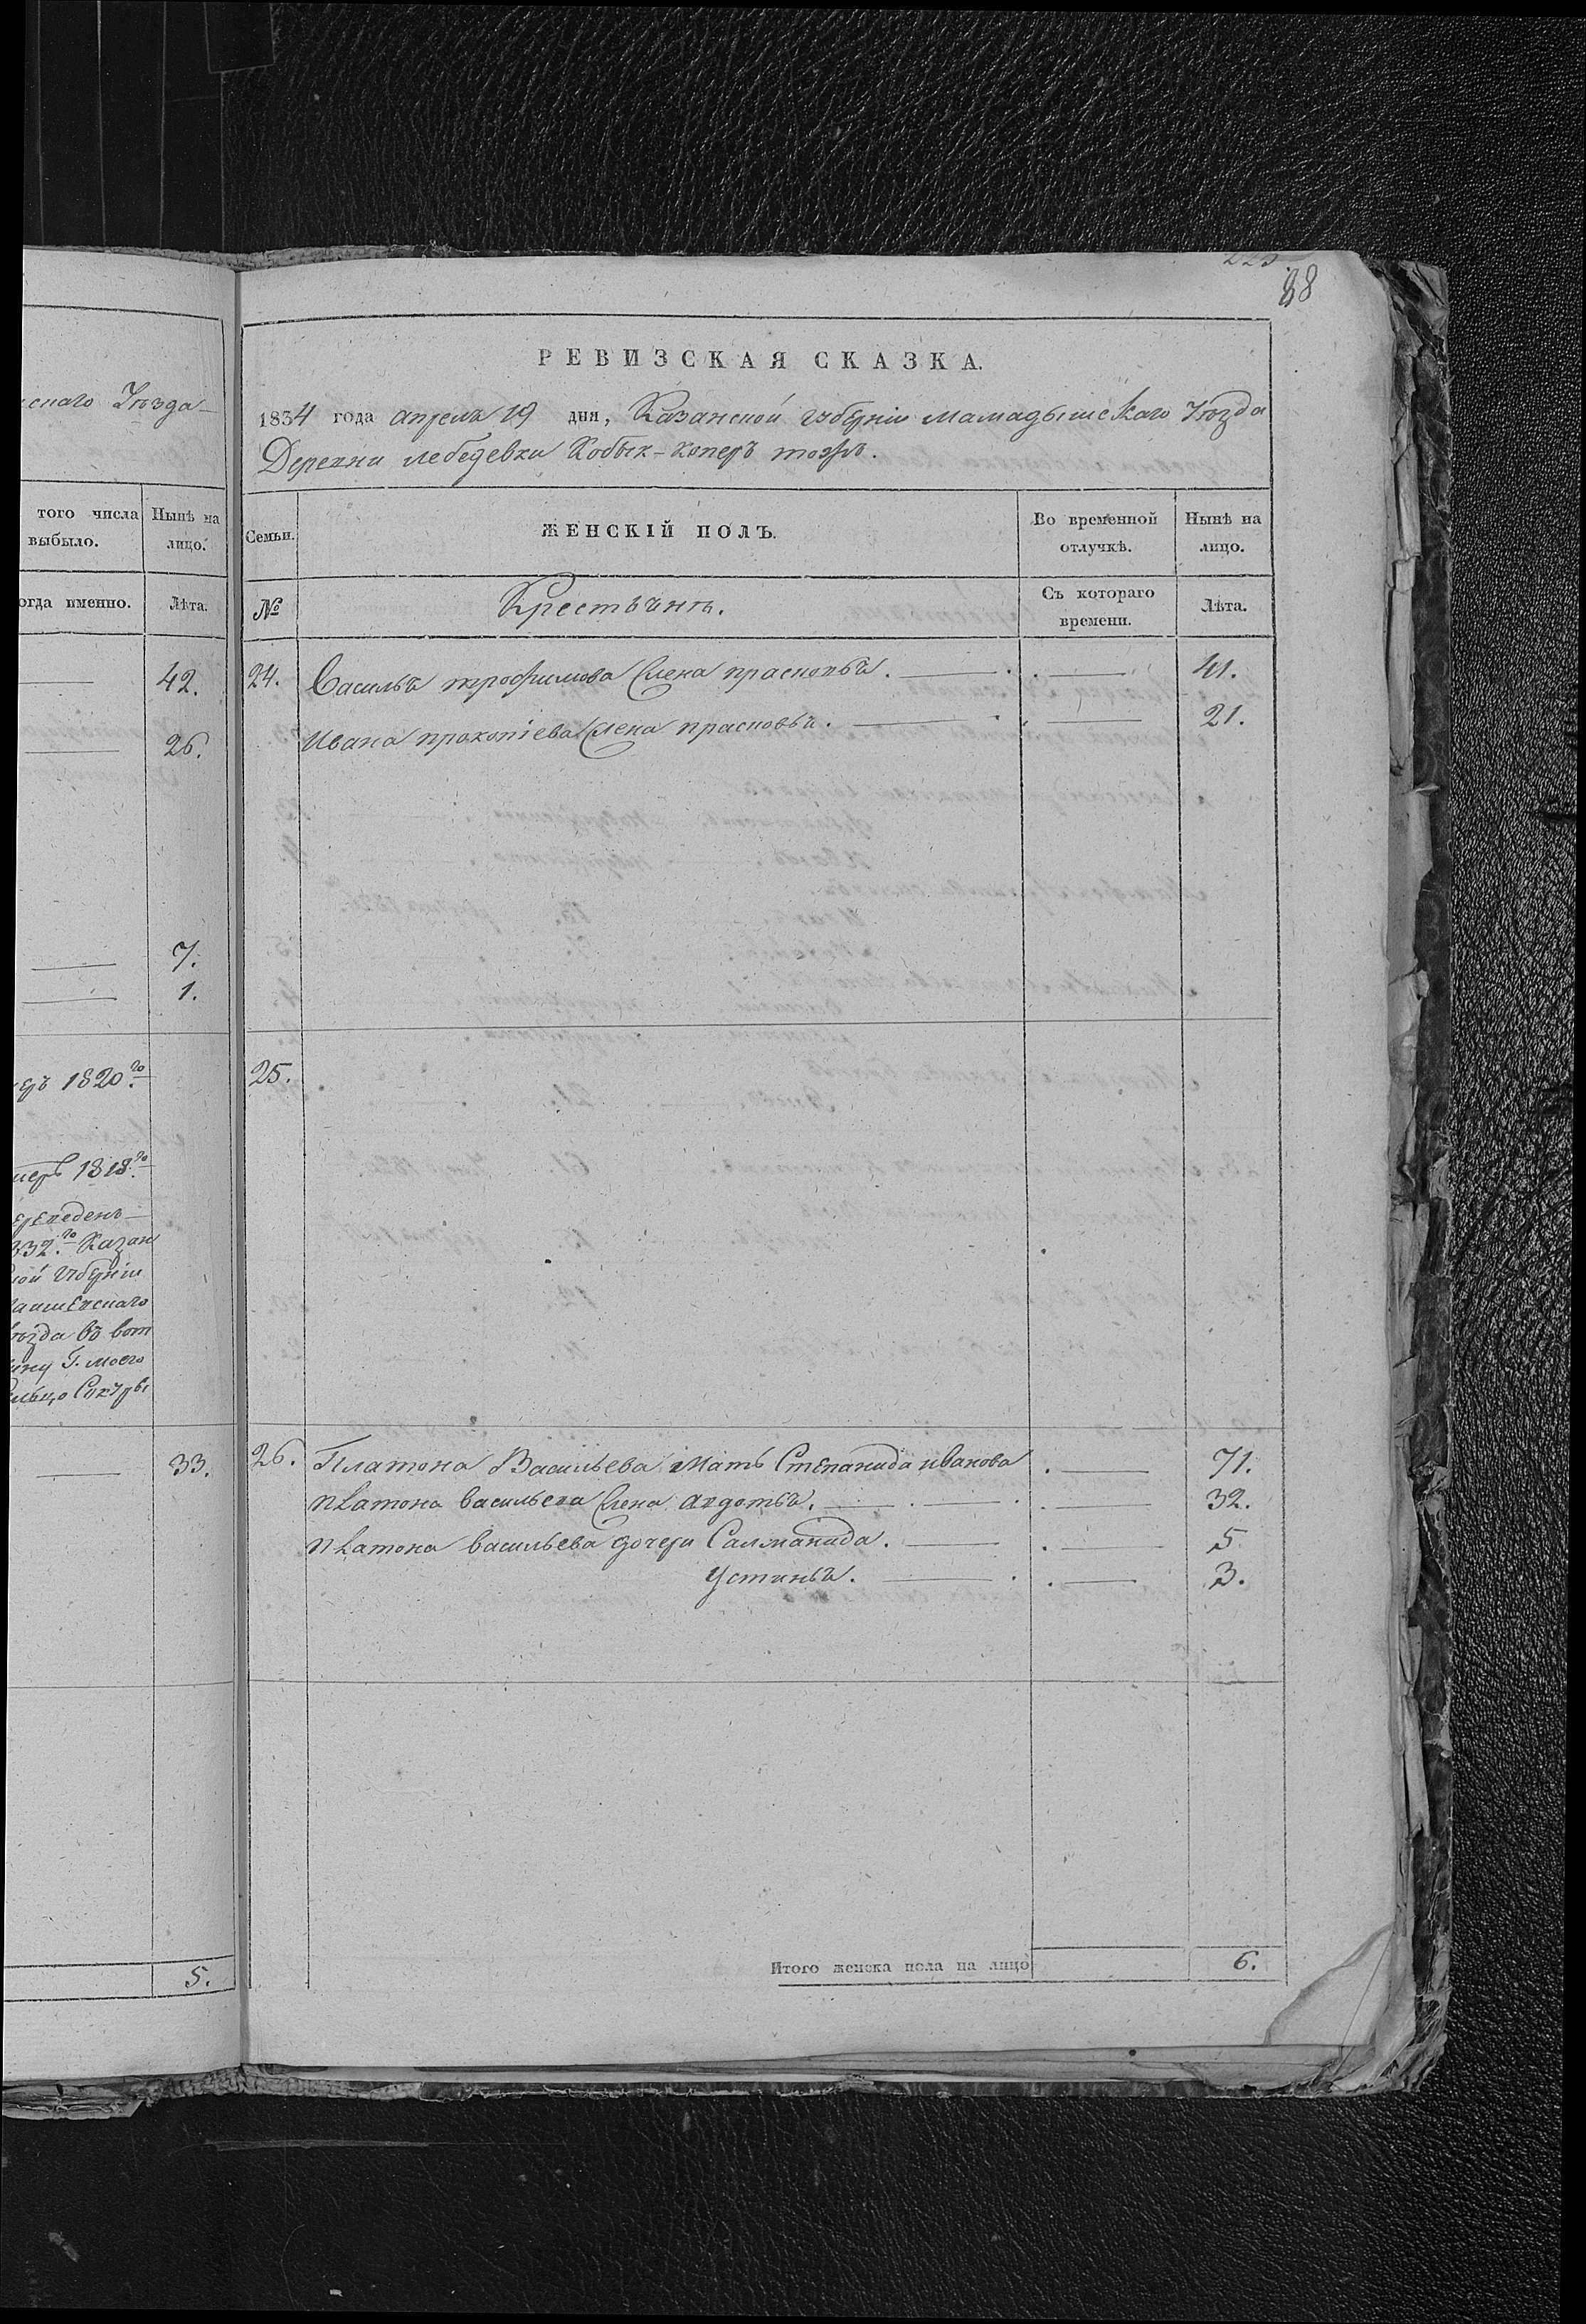 снаго Уѣзда
того числа выбыло.
Нынѣ на лицо.
огда именно.
Лѣта.
42.
26.
7.
1.
1820го
мерѣ 1818го
332го Казан
ной губерніи
уѣзда въ вот
чину Г. моего
33.
5.
88
РЕВИЗСКАЯ СКАЗКА.
1834 года апреля 19 дня, Казанской губерніи мамадышскаго уѣзда
Деревни лебедевки Кобык-коперъ тожъ.
Семьи.
ЖЕНСКІЙ ПОЛЪ.
Во временной отлучкѣ.
Нынѣ на лицо.
№
Крестьянъ.
Съ котораго времени.
Лѣта.
24. Василья трофимова жена прасковья. 41.
Ивана прокопіева жена прасковья. 21.
25.
26. Платона Васильева мать Степанида иванова 71.
платона васильева жена авдотья. 32.
платона васильева дочери Саломанида. 5
Устинья. 3.
Итого женска пола на лицо 6.